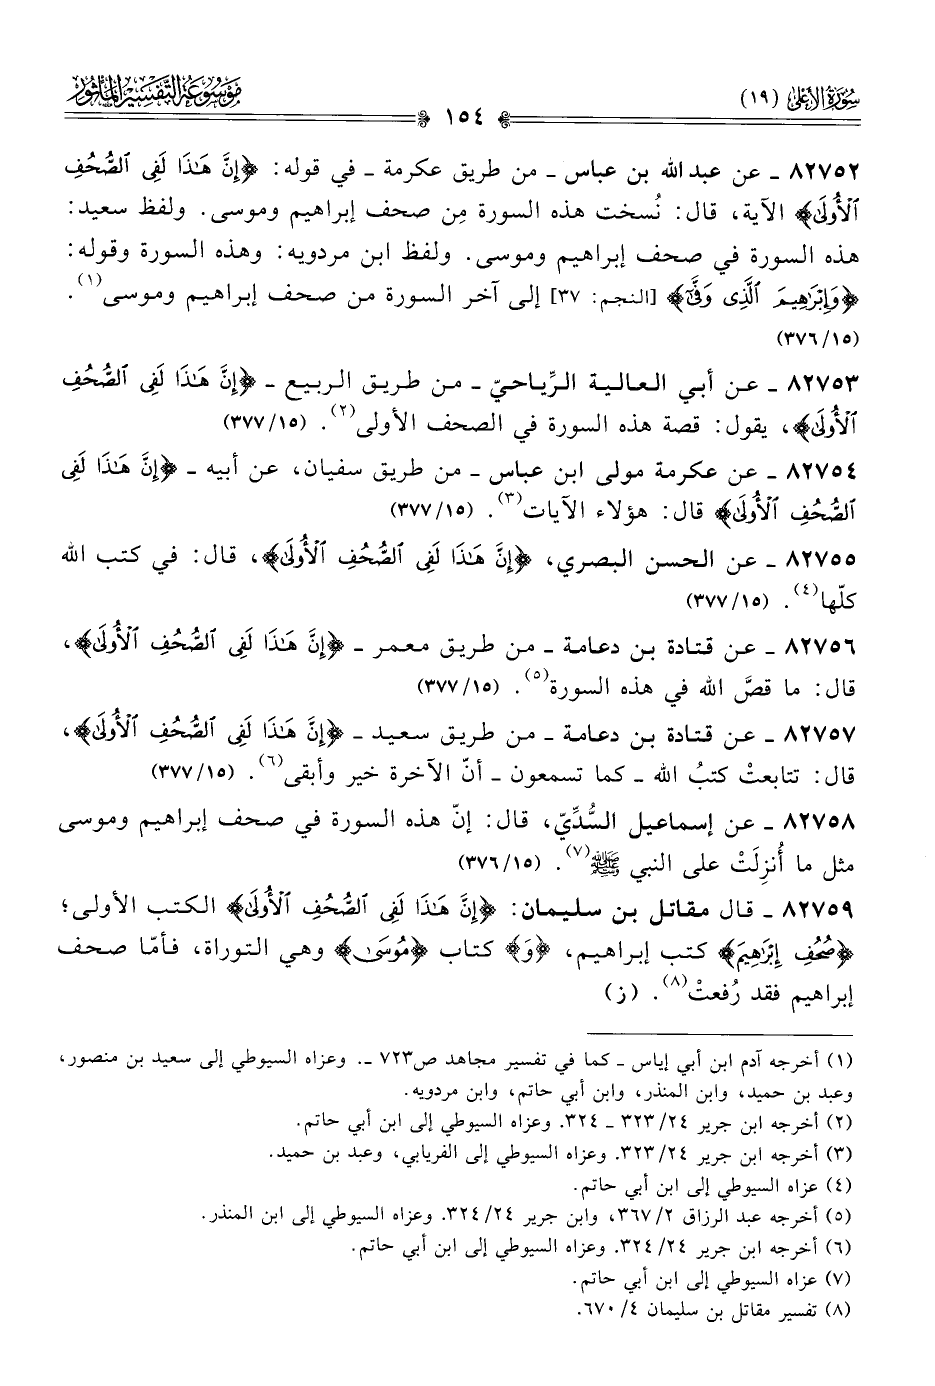 سورة الأعلى (١٩)
١٥٤
موسوعة التفسير المأثور
٨٢٧٥٢ ـ عن عبد الله بن عباس ـ من طريق عكرمة ـ في قوله: ﴿إِنَّ هَٰذَا لَفِى ٱلصُّحُفِ
ٱلْأُولَىٰ﴾ الآية، قال: نُسخت هذه السورة مِن صحف إبراهيم وموسى. ولفظ سعيد:
هذه السورة في صحف إبراهيم وموسى. ولفظ ابن مردويه: وهذه السورة وقوله:
﴿وَإِبْرَٰهِيمَ ٱلَّذِى وَفَّىٰٓ﴾ [النجم: ٣٧] إلى آخر السورة من صحف إبراهيم وموسى(١).
(٣٧٦/١٥)
٨٢٧٥٣ ـ عن أبي العالية الرِّياحيّ ـ من طريق الربيع ـ ﴿إِنَّ هَٰذَا لَفِى ٱلصُّحُفِ
ٱلْأُولَىٰ﴾، يقول: قصة هذه السورة في الصحف الأولى(٢). (٣٧٧/١٥)
٨٢٧٥٤ ـ عن عكرمة مولى ابن عباس ـ من طريق سفيان، عن أبيه ـ ﴿إِنَّ هَٰذَا لَفِى
ٱلصُّحُفِ ٱلْأُولَىٰ﴾ قال: هؤلاء الآيات(٣). (٣٧٧/١٥)
٨٢٧٥٥ ـ عن الحسن البصري، ﴿إِنَّ هَٰذَا لَفِى ٱلصُّحُفِ ٱلْأُولَىٰ﴾، قال: في كتب الله
كلّها(٤). (٣٧٧/١٥)
٨٢٧٥٦ ـ عن قتادة بن دعامة ـ من طريق معمر ـ ﴿إِنَّ هَٰذَا لَفِى ٱلصُّحُفِ ٱلْأُولَىٰ﴾،
قال: ما قصَّ الله في هذه السورة(٥). (٣٧٧/١٥)
٨٢٧٥٧ ـ عن قتادة بن دعامة ـ من طريق سعيد ـ ﴿إِنَّ هَٰذَا لَفِى ٱلصُّحُفِ ٱلْأُولَىٰ﴾،
قال: تتابعتْ كتبُ الله ـ كما تسمعون ـ أنّ الآخرة خير وأبقى(٦). (٣٧٧/١٥)
٨٢٧٥٨ ـ عن إسماعيل السُّدِّيّ، قال: إنّ هذه السورة في صحف إبراهيم وموسى
مثل ما أُنزِلَتْ على النبي ﷺ(٧). (٣٧٦/١٥)
٨٢٧٥٩ ـ قال مقاتل بن سليمان: ﴿إِنَّ هَٰذَا لَفِى ٱلصُّحُفِ ٱلْأُولَىٰ﴾ الكتب الأولى؛
﴿صُحُفِ إِبْرَٰهِيمَ﴾ كتب إبراهيم، ﴿وَ﴾ كتاب ﴿مُوسَىٰ﴾ وهي التوراة، فأمّا صحف
إبراهيم فقد رُفعتْ(٨). (ز)
(١) أخرجه آدم ابن أبي إياس ـ كما في تفسير مجاهد ص٧٢٣ ـ. وعزاه السيوطي إلى سعيد بن منصور،
وعبد بن حميد، وابن المنذر، وابن أبي حاتم، وابن مردويه.
(٢) أخرجه ابن جرير ٢٤/ ٣٢٣ ـ ٣٢٤. وعزاه السيوطي إلى ابن أبي حاتم.
(٣) أخرجه ابن جرير ٢٤/ ٣٢٣. وعزاه السيوطي إلى الفريابي، وعبد بن حميد.
(٤) عزاه السيوطي إلى ابن أبي حاتم.
(٥) أخرجه عبد الرزاق ٢/ ٣٦٧، وابن جرير ٢٤/ ٣٢٤. وعزاه السيوطي إلى ابن المنذر.
(٦) أخرجه ابن جرير ٢٤/ ٣٢٤. وعزاه السيوطي إلى ابن أبي حاتم.
(٧) عزاه السيوطي إلى ابن أبي حاتم.
(٨) تفسير مقاتل بن سليمان ٤/ ٦٧٠.